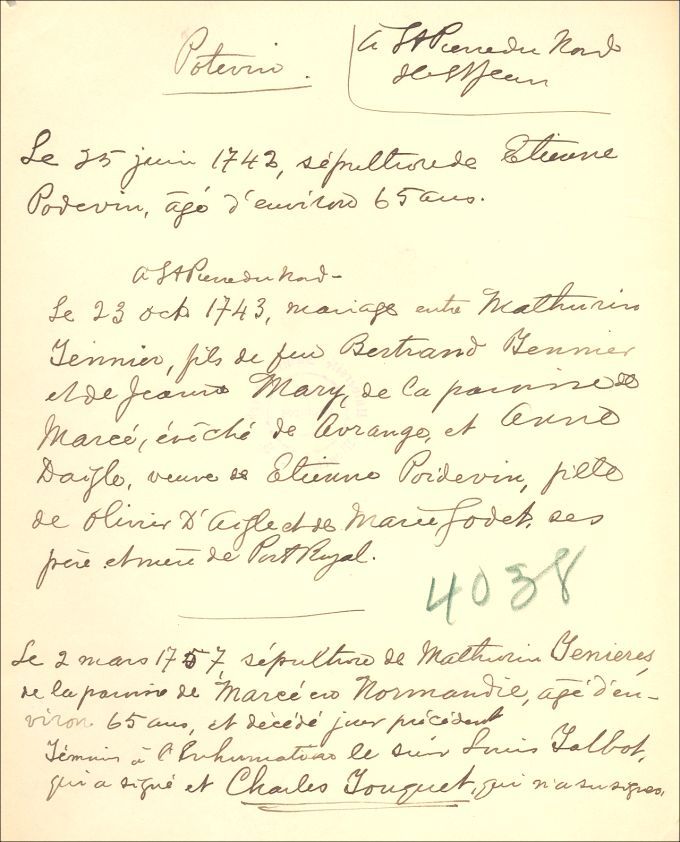 Potevin.
à St Pierre du Nord
de St Jean
Le 25 juin 1742, sépulture de Etienne
Podevin, âgé d'environ 65 ans.
à St Pierre du Nord-
Le 23 oct 1743, mariage entre Mathurin
Tennier, fils de feu Bertrand Tennier
et de Jeanne Mary, de la paroisse de
Marcé, évêché de Avrange, et Anne
Daigle, veuve de Etienne Poidevin, fille
de Olivier D'Aigle et de Marie Godet, ses
père et mère de Port Royal.
4038
Le 2 mars 1757, sépulture de Mathurin Tenieres,
de la paroisse de Marcé en Normandie, âgé d'en-
viron 65 ans, et décédé jour précédent
Témoins à l'Inhumation le sieur Louis Talbot,
qui a signé et Charles Fouquet, qui n'a su signer.